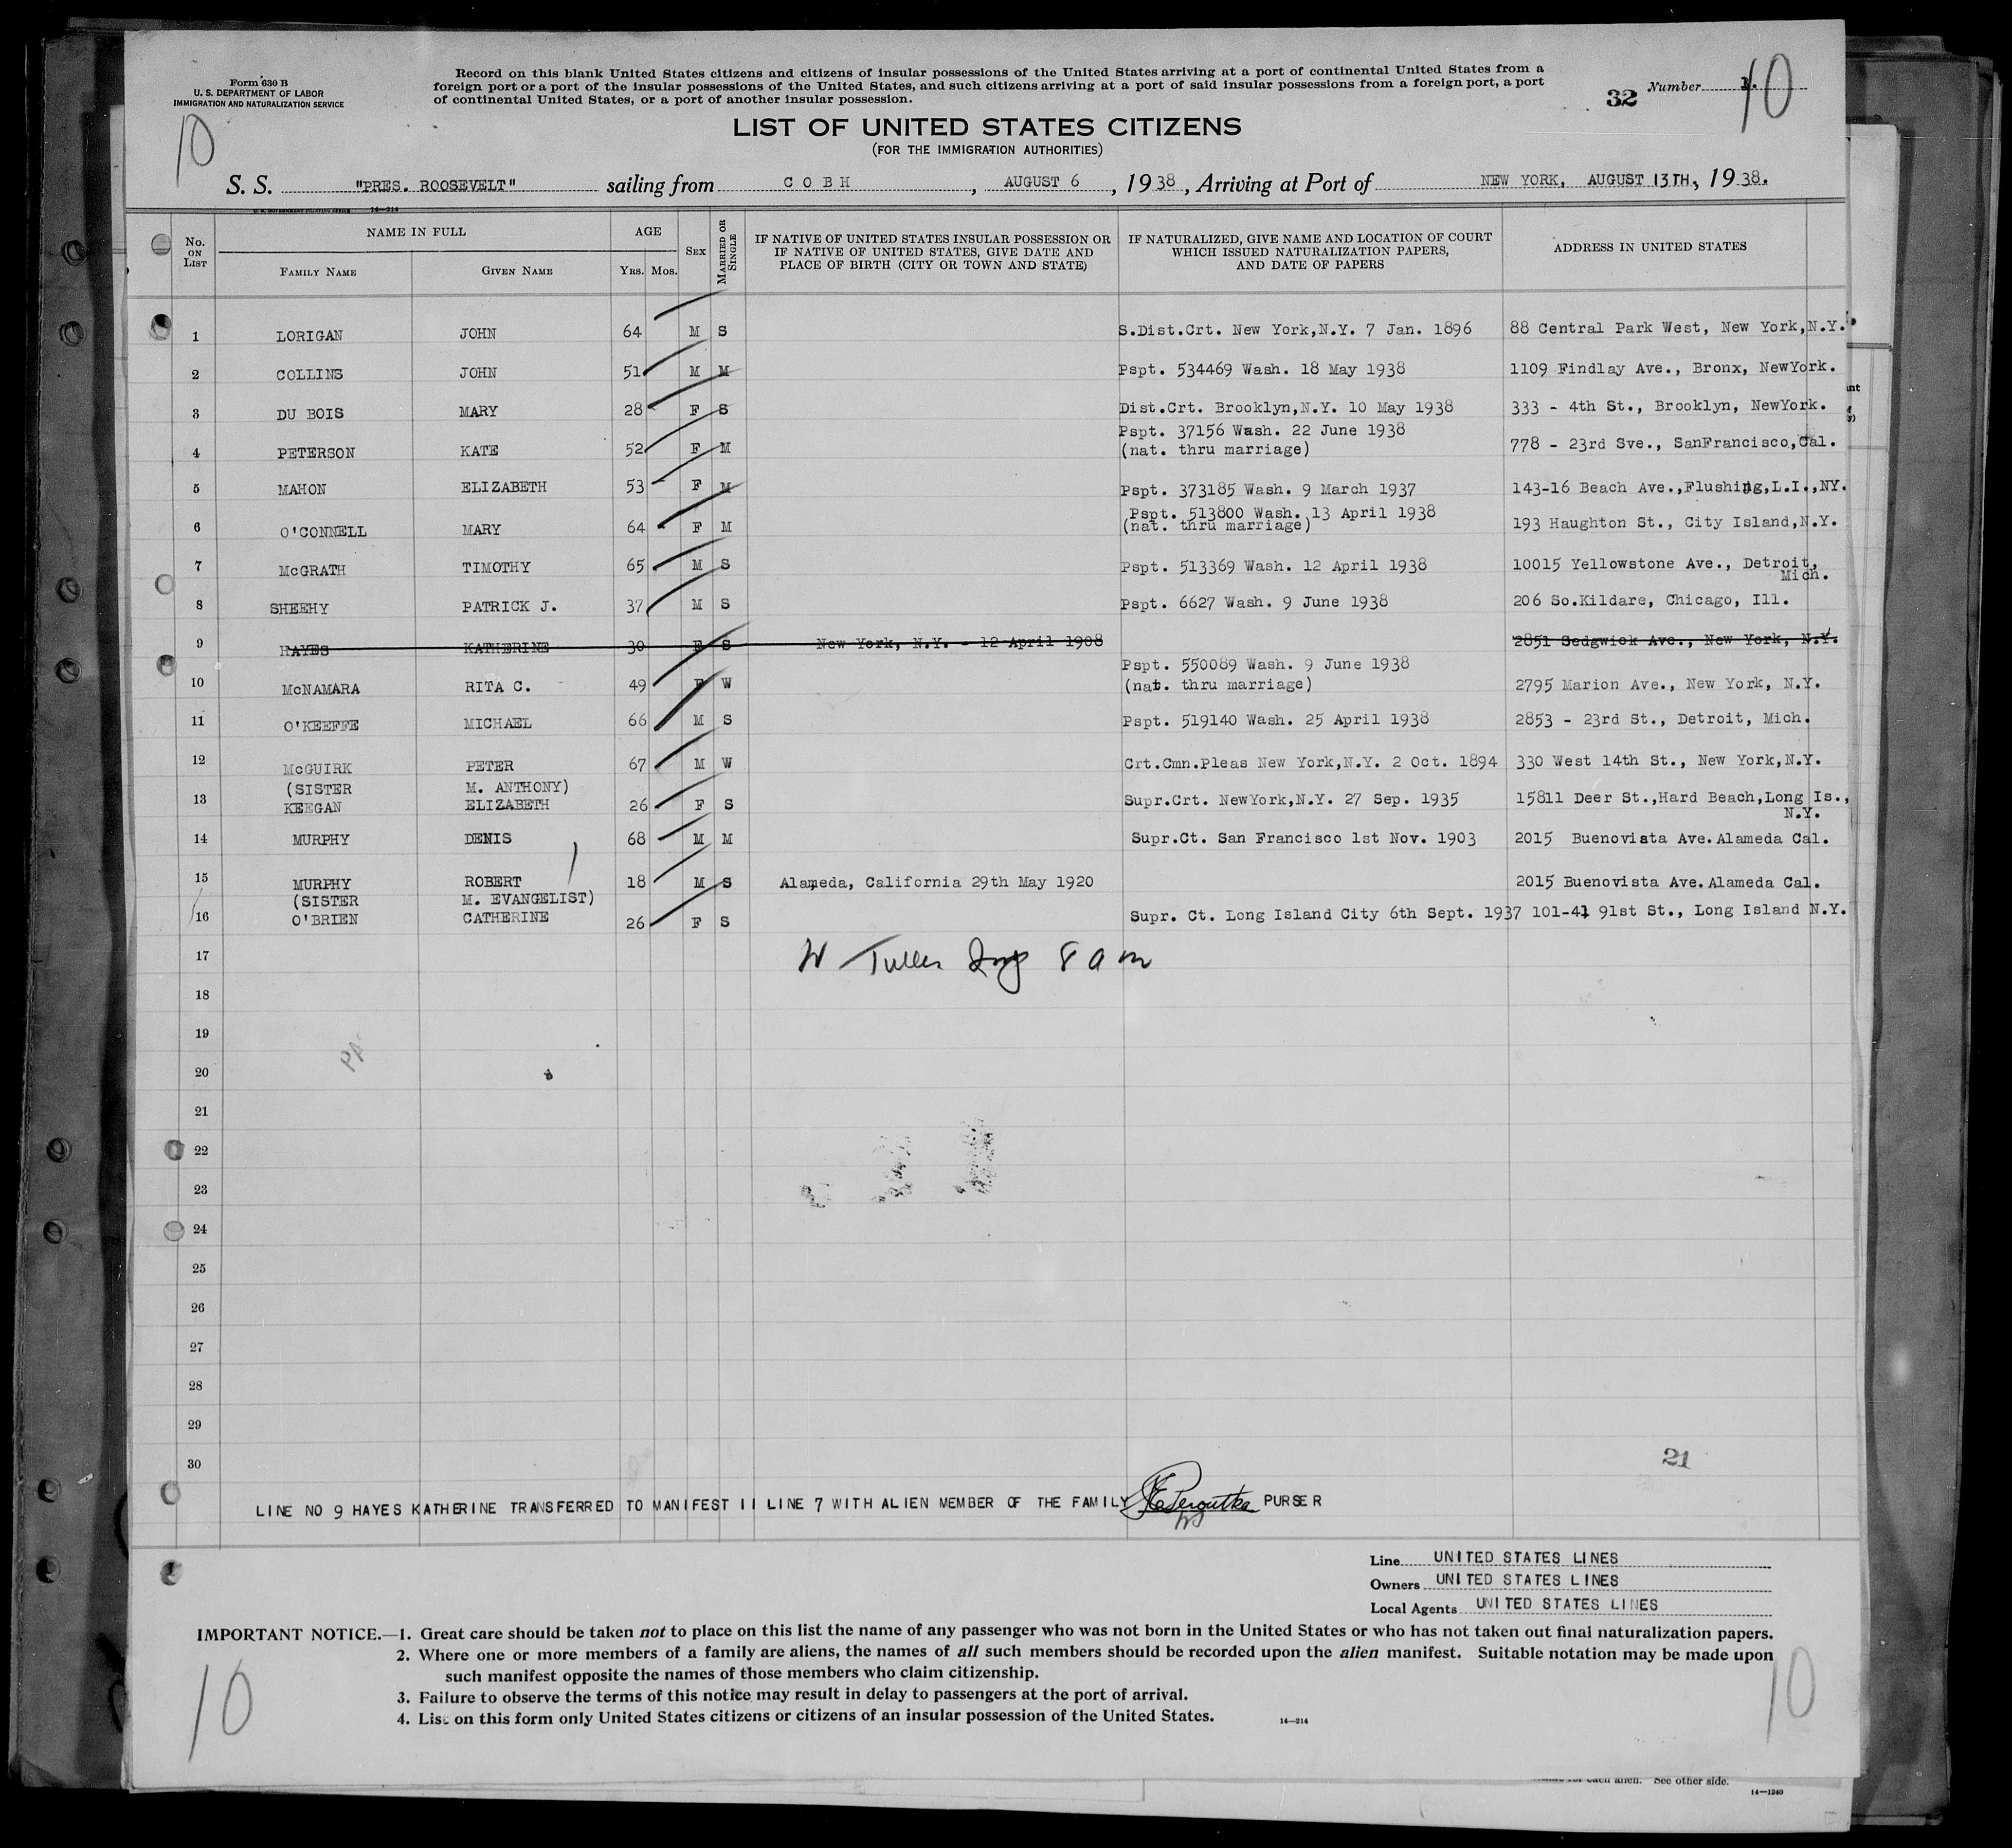 Form 630 B
U. S. DEPARTMENT OF LABOR
IMMIGRATION AND NATURALIZATION SERVICE
Record on this blank United States citizens and citizens of insular possessions of the United States arriving at a port of continental United States from a
foreign port or a port of the insular possessions of the United States, and such citizens arriving at a port of said insular possessions from a foreign port, a port
of continental United States, or a port of another insular possession.
32 Number 10
10
LIST OF UNITED STATES CITIZENS
(FOR THE IMMIGRATION AUTHORITIES)
S. S. "PRES. ROOSEVELT" sailing from COBH, AUGUST 6, 1938, Arriving at Port of NEW YORK, AUGUST 13TH, 1938.
U. S. GOVERNMENT PRINTING OFFICE 14—214
No. ON LIST NAME IN FULL AGE SEX MARRIED OR SINGLE IF NATIVE OF UNITED STATES INSULAR POSSESSION OR IF NATIVE OF UNITED STATES, GIVE DATE AND PLACE OF BIRTH (CITY OR TOWN AND STATE) IF NATURALIZED, GIVE NAME AND LOCATION OF COURT WHICH ISSUED NATURALIZATION PAPERS, AND DATE OF PAPERS ADDRESS IN UNITED STATES
FAMILY NAME GIVEN NAME YRS. MOS.
1 LORIGAN JOHN 64 M S S.Dist.Crt. New York,N.Y. 7 Jan. 1896 88 Central Park West, New York,N.Y.
2 COLLINS JOHN 51 M M Pspt. 534469 Wash. 18 May 1938 1109 Findlay Ave., Bronx, NewYork.
3 DU BOIS MARY 28 F S Dist.Crt. Brooklyn,N.Y. 10 May 1938 333 - 4th St., Brooklyn, NewYork.
Pspt. 37156 Wash. 22 June 1938
4 PETERSON KATE 52 F M (nat. thru marriage) 778 - 23rd Sve., SanFrancisco,Cal.
5 MAHON ELIZABETH 53 F M Pspt. 373185 Wash. 9 March 1937 143-16 Beach Ave.,Flushing,L.I.,NY.
Pspt. 513800 Wash. 13 April 1938
6 O'CONNELL MARY 64 F M (nat. thru marriage) 193 Haughton St., City Island,N.Y.
7 McGRATH TIMOTHY 65 M S Pspt. 513369 Wash. 12 April 1938 10015 Yellowstone Ave., Detroit,
Mich.
8 SHEEHY PATRICK J. 37 M S Pspt. 6627 Wash. 9 June 1938 206 So.Kildare, Chicago, Ill.
9 HAYES KATHERINE 30 F S New York, N.Y. - 12 April 1908 2851 Sedgwick Ave., New York, N.Y.
Pspt. 550089 Wash. 9 June 1938
10 McNAMARA RITA C. 49 F W (nat. thru marriage) 2795 Marion Ave., New York, N.Y.
11 O'KEEFFE MICHAEL 66 M S Pspt. 519140 Wash. 25 April 1938 2853 - 23rd St., Detroit, Mich.
12 McGUIRK PETER 67 M W Crt.Cmn.Pleas New York,N.Y. 2 Oct. 1894 330 West 14th St., New York,N.Y.
(SISTER M. ANTHONY)
13 KEEGAN ELIZABETH 26 F S Supr.Crt. NewYork,N.Y. 27 Sep. 1935 15811 Deer St.,Hard Beach,Long Is.,
N.Y.
14 MURPHY DENIS 68 M M Supr.Ct. San Francisco 1st Nov. 1903 2015 Buenovista Ave.Alameda Cal.
15 MURPHY ROBERT 18 M S Alameda, California 29th May 1920 2015 Buenovista Ave.Alameda Cal.
(SISTER M. EVANGELIST)
16 O'BRIEN CATHERINE 26 F S Supr. Ct. Long Island City 6th Sept. 1937 101-41 91st St., Long Island N.Y.
17 W Tuller Insp 8 am
18
19
20
21
22
23
24
25
26
27
28
29
30
21
LINE NO 9 HAYES KATHERINE TRANSFERRED TO MANIFEST 11 LINE 7 WITH ALIEN MEMBER OF THE FAMILY PURSER
Line UNITED STATES LINES
Owners UNITED STATES LINES
Local Agents UNITED STATES LINES
IMPORTANT NOTICE.—1. Great care should be taken not to place on this list the name of any passenger who was not born in the United States or who has not taken out final naturalization papers.
2. Where one or more members of a family are aliens, the names of all such members should be recorded upon the alien manifest. Suitable notation may be made upon
such manifest opposite the names of those members who claim citizenship.
3. Failure to observe the terms of this notice may result in delay to passengers at the port of arrival.
4. List on this form only United States citizens or citizens of an insular possession of the United States.
14—214
10
10
each alien. See other side.
14—1240